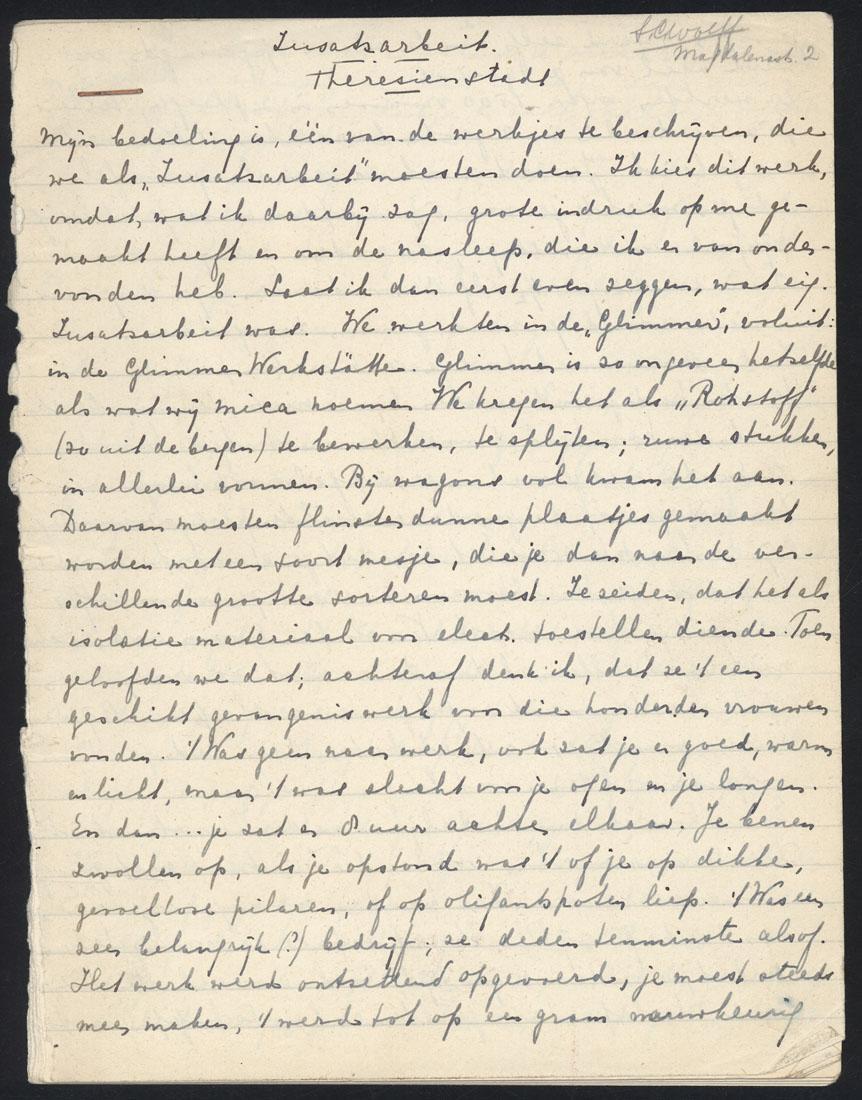 Zusatzarbeit.
Magdalenastr. 2
Theresienstadt
Mijn bedoeling is, één van de werkjes te beschrijven, die
we als „Zusatzarbeit" moesten doen. Ik kies dit werk,
omdat, wat ik daarbij zag, grote indruk op me ge-
maakt heeft en om de nasleep, die ik er van onder-
vonden heb. Laat ik dan eerst even zeggen, wat eig.
Zusatzarbeit was. We werkten in de „Glimmer", voluit:
in de Glimmer Werkstätte. Glimmer is zo ongeveer hetzelfde
als wat wij mica noemen We kregen het als „Rohstoff"
(zo uit de bergen) te bewerken, te splijten; ruwe stukken,
in allerlei vormen. Bij wagons vol kwam het aan.
Daarvan moesten flinterdunne plaatjes gemaakt
worden met een soort mesje, die je dan naar de ver-
schillende grootte sorteren moest. Ze zeiden, dat het als
isolatie materiaal voor elect. toestellen diende. Toen
geloofden we dat; achteraf denk ik, dat ze 't een
geschikt gevangeniswerk voor die honderden vrouwen
vonden. 't Was geen naar werk, ook zat je er goed, warm
en licht, maar 't was slecht voor je ogen en je longen.
En dan ... je zat er 8 uur achter elkaar. Je benen
zwollen op, als je opstond was 't of je op dikke,
gevoelloze pilaren, of op olifantspoten liep. 't Was een
zeer belangrijk (?) bedrijf; ze deden tenminste alsof.
Het werk werd ontzettend opgevoerd, je moest steeds
meer maken, 't werd tot op een gram nauwkeurig